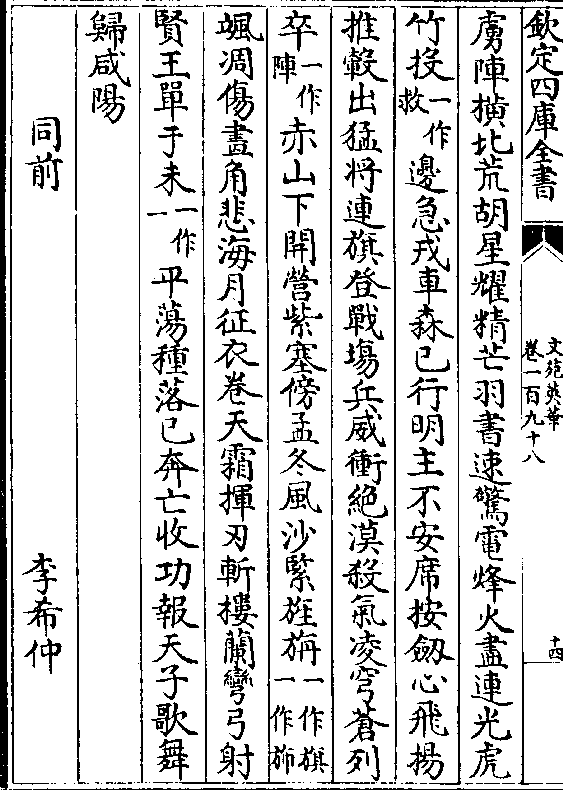 欽定四庫全書
文苑英華
卷一百九十八
十四
虜陣撗北荒胡星耀精芒羽書速驚電烽火盡連光虎
竹投一作救邊急戎車森已行明主不安席按劒心飛揚
推轂出猛將連旗登戰塲兵威衝絕漠殺氣凌穹蒼列
卒一作陣赤山下開營紫塞傍孟冬風沙緊旌旃一作旗一作斾
颯凋傷畫角悲海月征衣卷天霜揮刃斬樓蘭彎弓射
賢王單于未一作一平蕩種落已奔亡收功報天子歌舞
歸咸陽
同前 李希仲